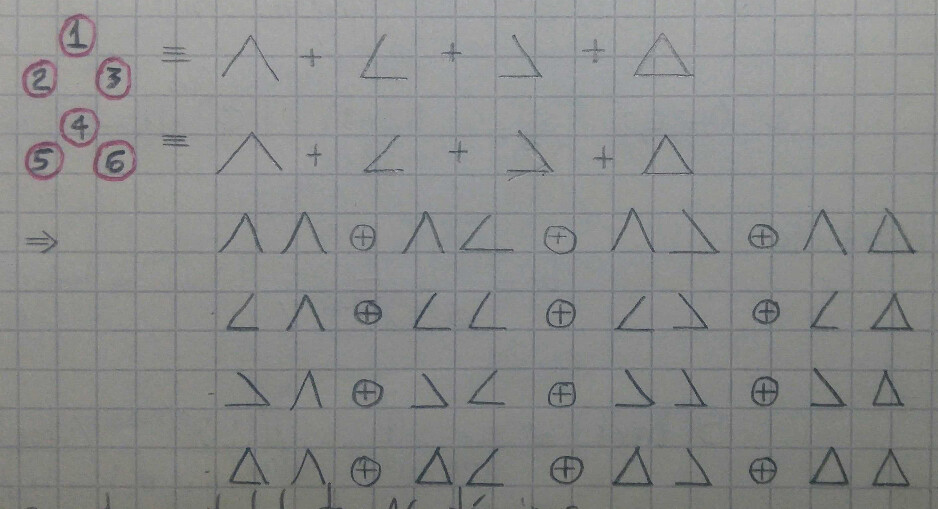 1
2 3 ≡ ∧ + ∠ + ⦣ + △
4
5 6 ≡ ∧ + ∠ + ⦣ + △
⇒ ∧ ∧ ⊕ ∧ ∠ ⊕ ∧ ⦣ ⊕ ∧ △
∠ ∧ ⊕ ∠ ∠ ⊕ ∠ ⦣ ⊕ ∠ △
⦣ ∧ ⊕ ⦣ ∠ ⊕ ⦣ ⦣ ⊕ ⦣ △
△ ∧ ⊕ △ ∠ ⊕ △ ⦣ ⊕ △ △